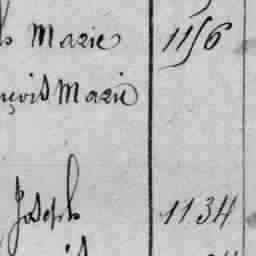 Marie 1156
Marie
Joseph 1134